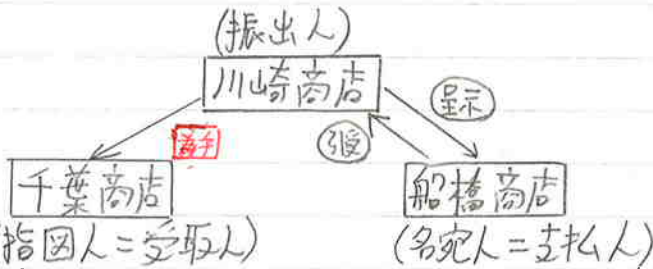 (振出人)
川崎商店
呈示
為手
引受
千葉商店
船橋商店
指図人=受取人)
(名宛人=支払人)